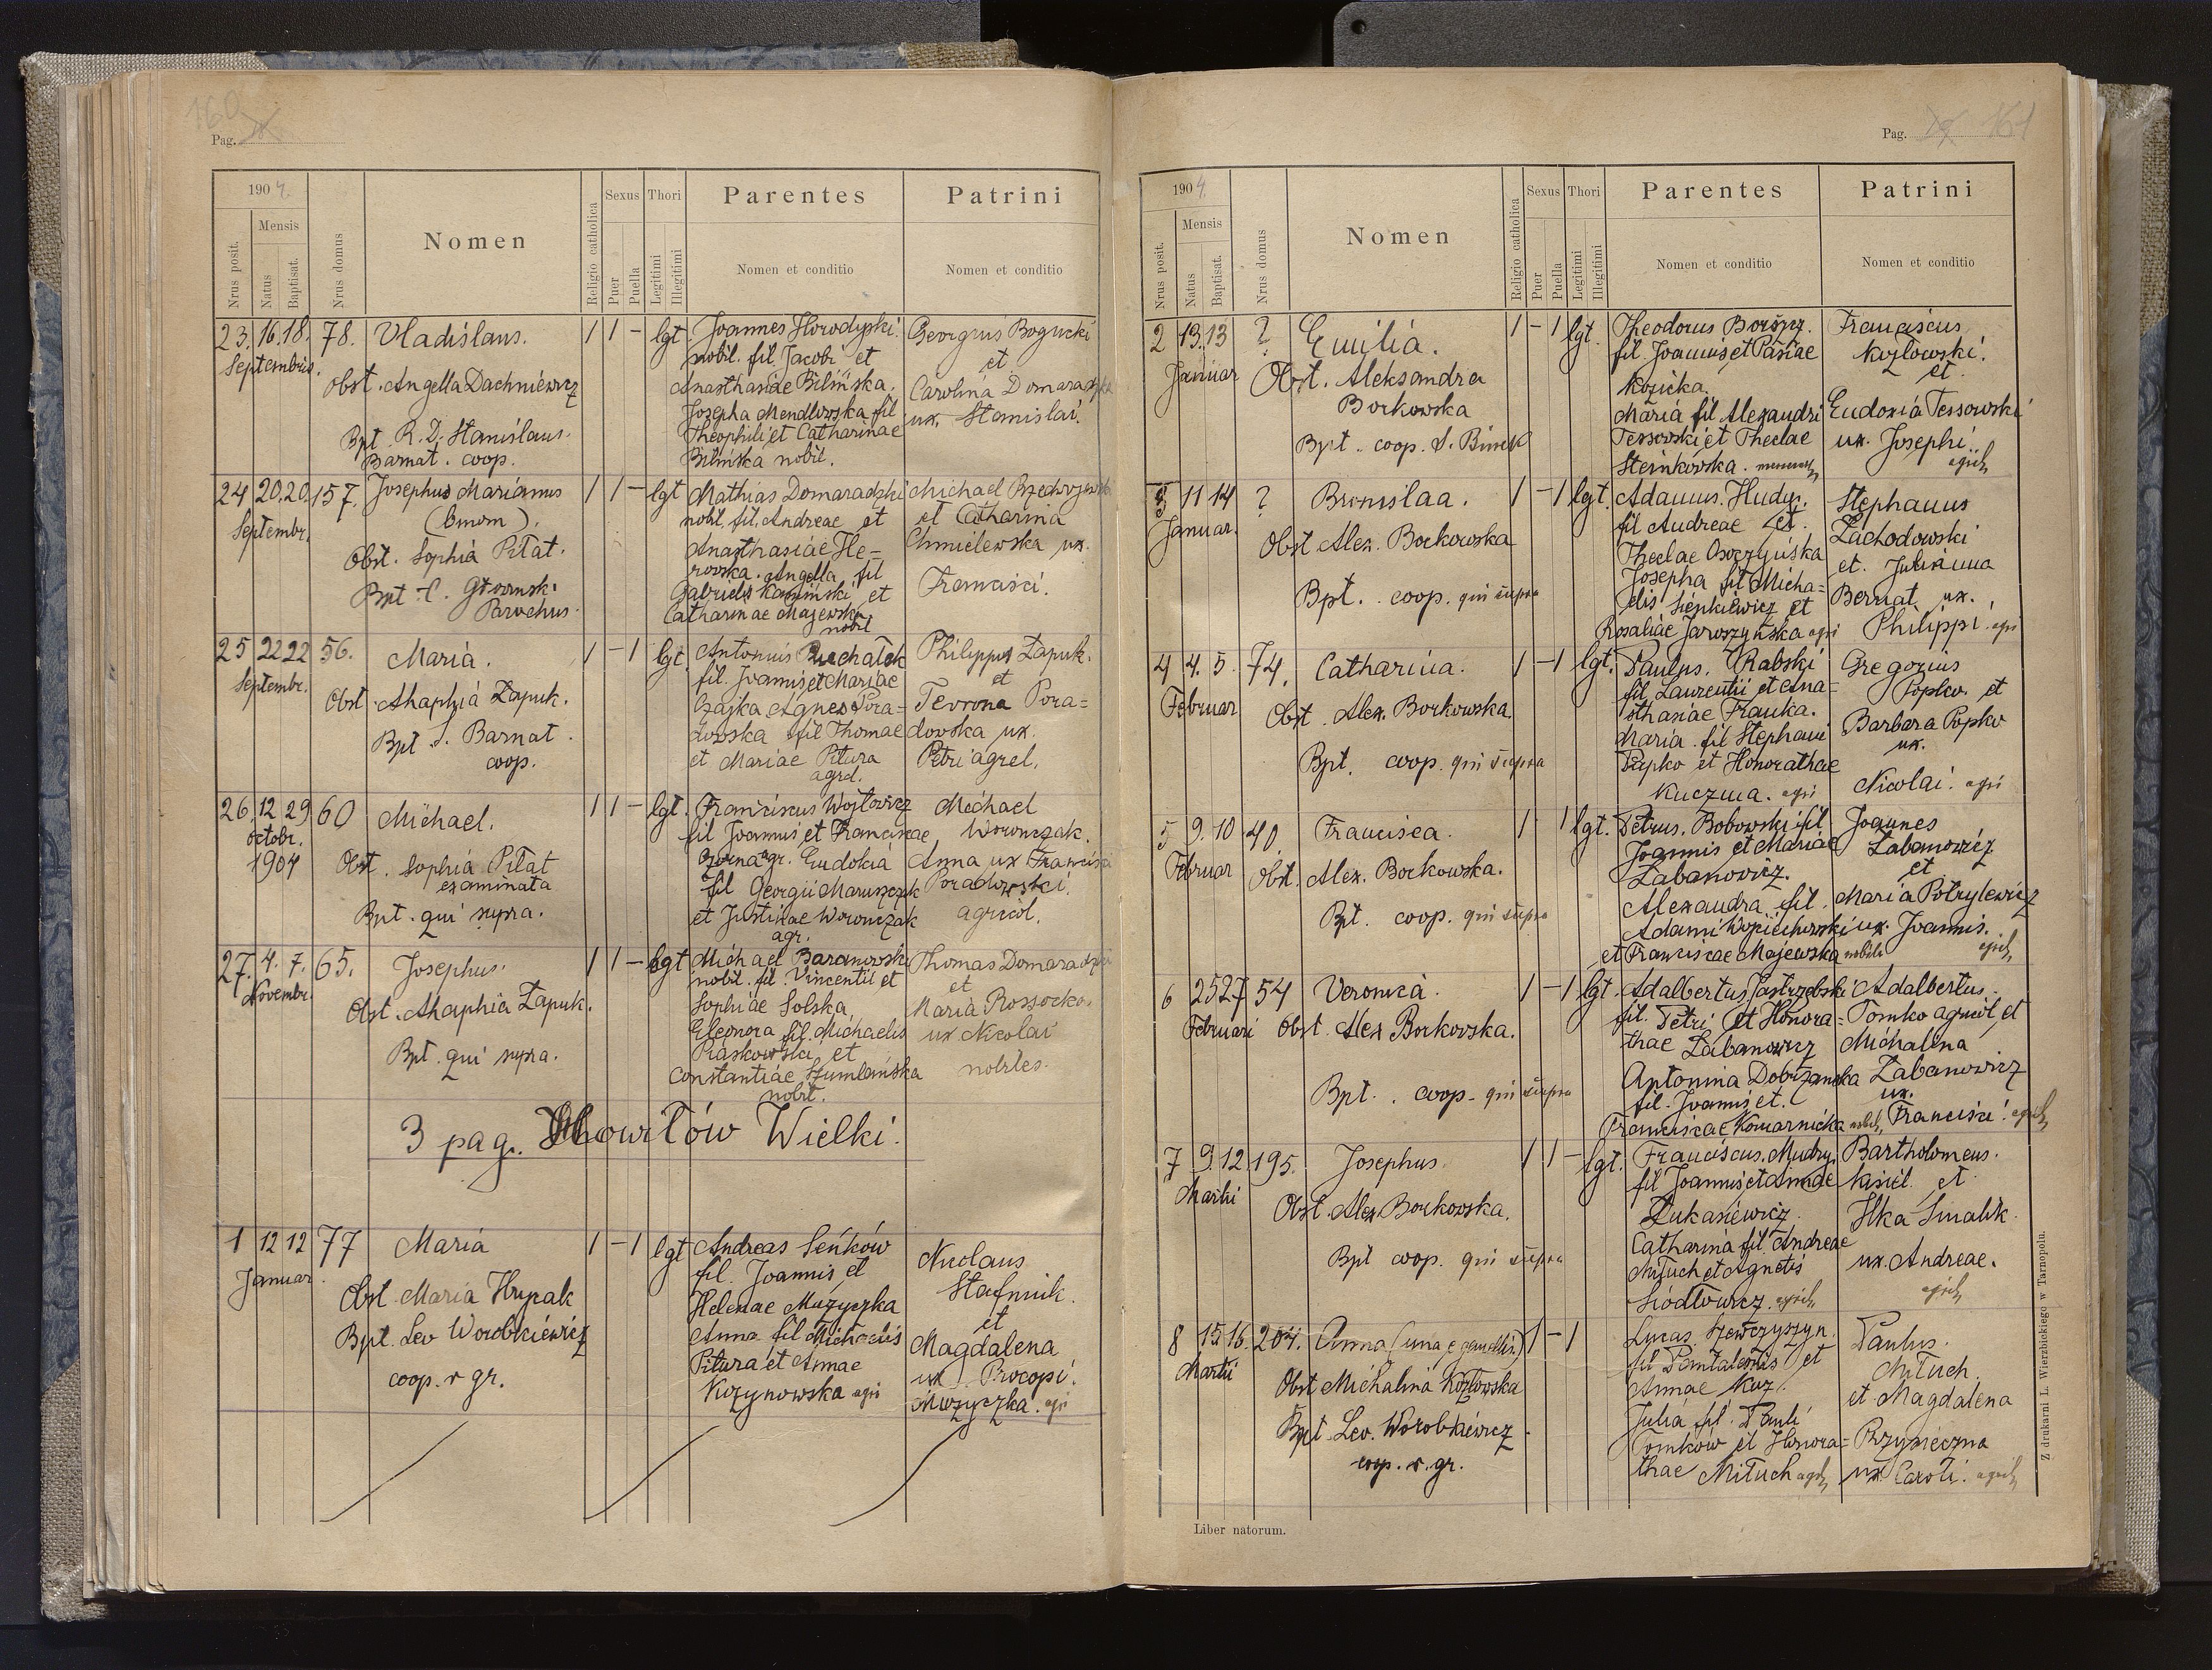 160
Pag.
1904.
Mensis
Nrus posit.
Natus
Baptisat.
Nrus domus
Nomen
Religio catholica
Sexus
Puer
Puella
Thori
Legitimi
Illegitimi
Parentes
Nomen et conditio
Patrini
Nomen et conditio
23. 16. 18. 78. Vladislaus. 1 1 - lgt.
Septembris.
Obst. Angella Dachniewicz
Bpt. R. D. Stanislaus.
Barnat. coop.
Joannes Horodyski
nobil. fil. Jacobi et
Anasthasiae Bilińska.
Josepha Mendlowska fil
Theophili et Catharinae
Bilińska nobil.
Georgius Bogucki
et
Carolina Domaradzka
ux. Stanislai.
24 20. 20. 157. Josephus Marianus 1 1 - lgt
Septembr.
Obst. Sophia Piłat.
Bpt
Parochus.
Mathias Domaradzki
nobil. fil. Andreae et
Anasthasiae He=
rowska. Angella fil
Gabrielis Kamiński et
Catharinae Majewska
nobil
Michael
et Catharina
Chmielewska ux.
Francisci.
25 22 22 56. Maria. 1 - 1 lgt.
Septembr.
Obst. Ahaphia Łapuk.
Bpt. S. Barnat.
coop.
Antonius
fil. Joannis et Mariae
Czajka Agnes Pora=
dowska fil Thomae
et Mariae Pitura
agrel.
Philippus Łapuk.
et
Tevrona Pora=
dowska ux.
Petri agrel.
26. 12 29 60 Michael. 1 1 - lgt.
Octobr.
1904
Obst. Sophia Piłat
examinata
Bpt. qui supra.
Franciscus Wojtowicz
fil Joannis et Franciscae
agr. Eudokia
fil Georgii Maruszczak
et Justinae Worończak
agr.
Michael
Worończak.
Anna ux Francisci
Poradowski.
agricol.
27. 4. 7. 65. Josephus. 1 1 - lgt
Novembr.
Obst. Ahaphia Łapuk.
Bpt. qui supra.
Michael Baranowski
nobil. fil. Vincentii et
Sophiae Solska,
Eleonora fil. Michaelis
Piaskowski et
Constantiae Szumlańska
nobil.
Thomas Domaradzki
et
Maria Rossocka.
ux Nicolai
nobiles.
3 pag. Wielki.
1 12 12 77 Maria 1 - 1 lgt
Januar.
Obst. Maria Hrypak
Bpt. Lev Worobkiewicz
coop. r. gr.
Andreas Seńków
fil. Joannis et
Helenae Muzyczka
Anna fil Michaelis
Pitura et Annae
Kozynowska agri
Nicolaus
Stafiniik.
et
Magdalena
ux. Procopi.
Muzyczka. agri
Pag. 161
1904.
Mensis
Nrus posit.
Natus
Baptisat.
Nrus domus
Nomen
Religio catholica
Sexus
Puer
Puella
Thori
Legitimi
Illegitimi
Parentes
Nomen et conditio
Patrini
Nomen et conditio
2 13. 13 ? Emilia. 1 - 1 lgt.
Januar
Obst. Aleksandra
Borkowska
Bpt. coop. S.
Theodorus
fil. Joannis et Pasiae
Kozicka.
Maria fil. Alexandri
Tessowski et Theclae
Steinkowska.
Franciscus
Kozłowski.
et
Eudoxia Tessowski
ux. Josephi
3 11 14 ? Bronislaa. 1 - 1 lgt.
Januar.
Obst Alex. Borkowska
Bpt. coop. qui supra
Adamus. Hudy.
fil Andreae et.
Theclae
Josepha fil Micha=
elis Sieńkiewicz et
Rosaliae Jaroszyńska agri
Stephanus
Zachodowski
et. Julianna
Bernat ux.
Philippi. agri
4 4. 5. 74. Catharina. 1 - 1 lgt.
Februar
Obst. Alex. Borkowska
Bpt. coop. qui supra
Paulus. Rabski
fil. Laurentii et Ana=
sthasiae Franka.
Maria. fil Stephani
Papko et Honorathae
Kuczma. agri
Gregorius
Popko. et
Barbara Popko
ux.
Nicolai. agri
5 9. 10 40. Francisca. 1 1 lgt.
Februar
Obst. Alex. Borkowska.
Bpt. coop. qui supra
Petrus. Bobowski fil.
Joannis et Mariae
Łabanowicz.
Alexandra fil.
Adami Wojciechowski
et Franciscae Majewska nobiles
Joannes
Łabanowicz
et
Maria Potrylewicz
ux. Joannis.
6 25 27 54 Veronica. 1 - 1 lgt.
Februari
Obst. Alex Borkowska.
Bpt. coop. qui supra
Adalbertus Jastrzębski
fil. Petri et Honora=
thae Łabanowicz
Antonina Dobrzańska
fil. Joannis et.
Franciscae Komarnicka
Adalbertus.
Tomko agricol et
Michalina
Łabanowicz
ux.
Francisci.
7 9. 12. 195. Josephus. 1 1 - lgt.
Martii
Obst. Alex Borkowska.
Bpt coop. qui supra
Franciscus. Mudry
fil Joannis et Annae
Łukasiewicz.
Catharina fil. Andreae
Mituch et Agnetis
Siodłowicz.
Bartholomeus.
Kisiel. et
Ilka Smalik.
ux. Andreae.
8 15 16. 204. Anna (una e gemellis.) 1 - 1
Martii
Obst. Michalina Kozłowska
Bpt Lev. Worobkiewicz
coop. r. gr.
Lucas Szewczyszyn.
fil Pantaleonis et
Annae Kuz.
Julia fil. Pauli
Tomków et Honora=
thae Mituch
Paulus.
Mituch
et Magdalena
ux Caroli.
Z drukarni L. Wierzbickiego w Tarnopolu.
Liber natorum.